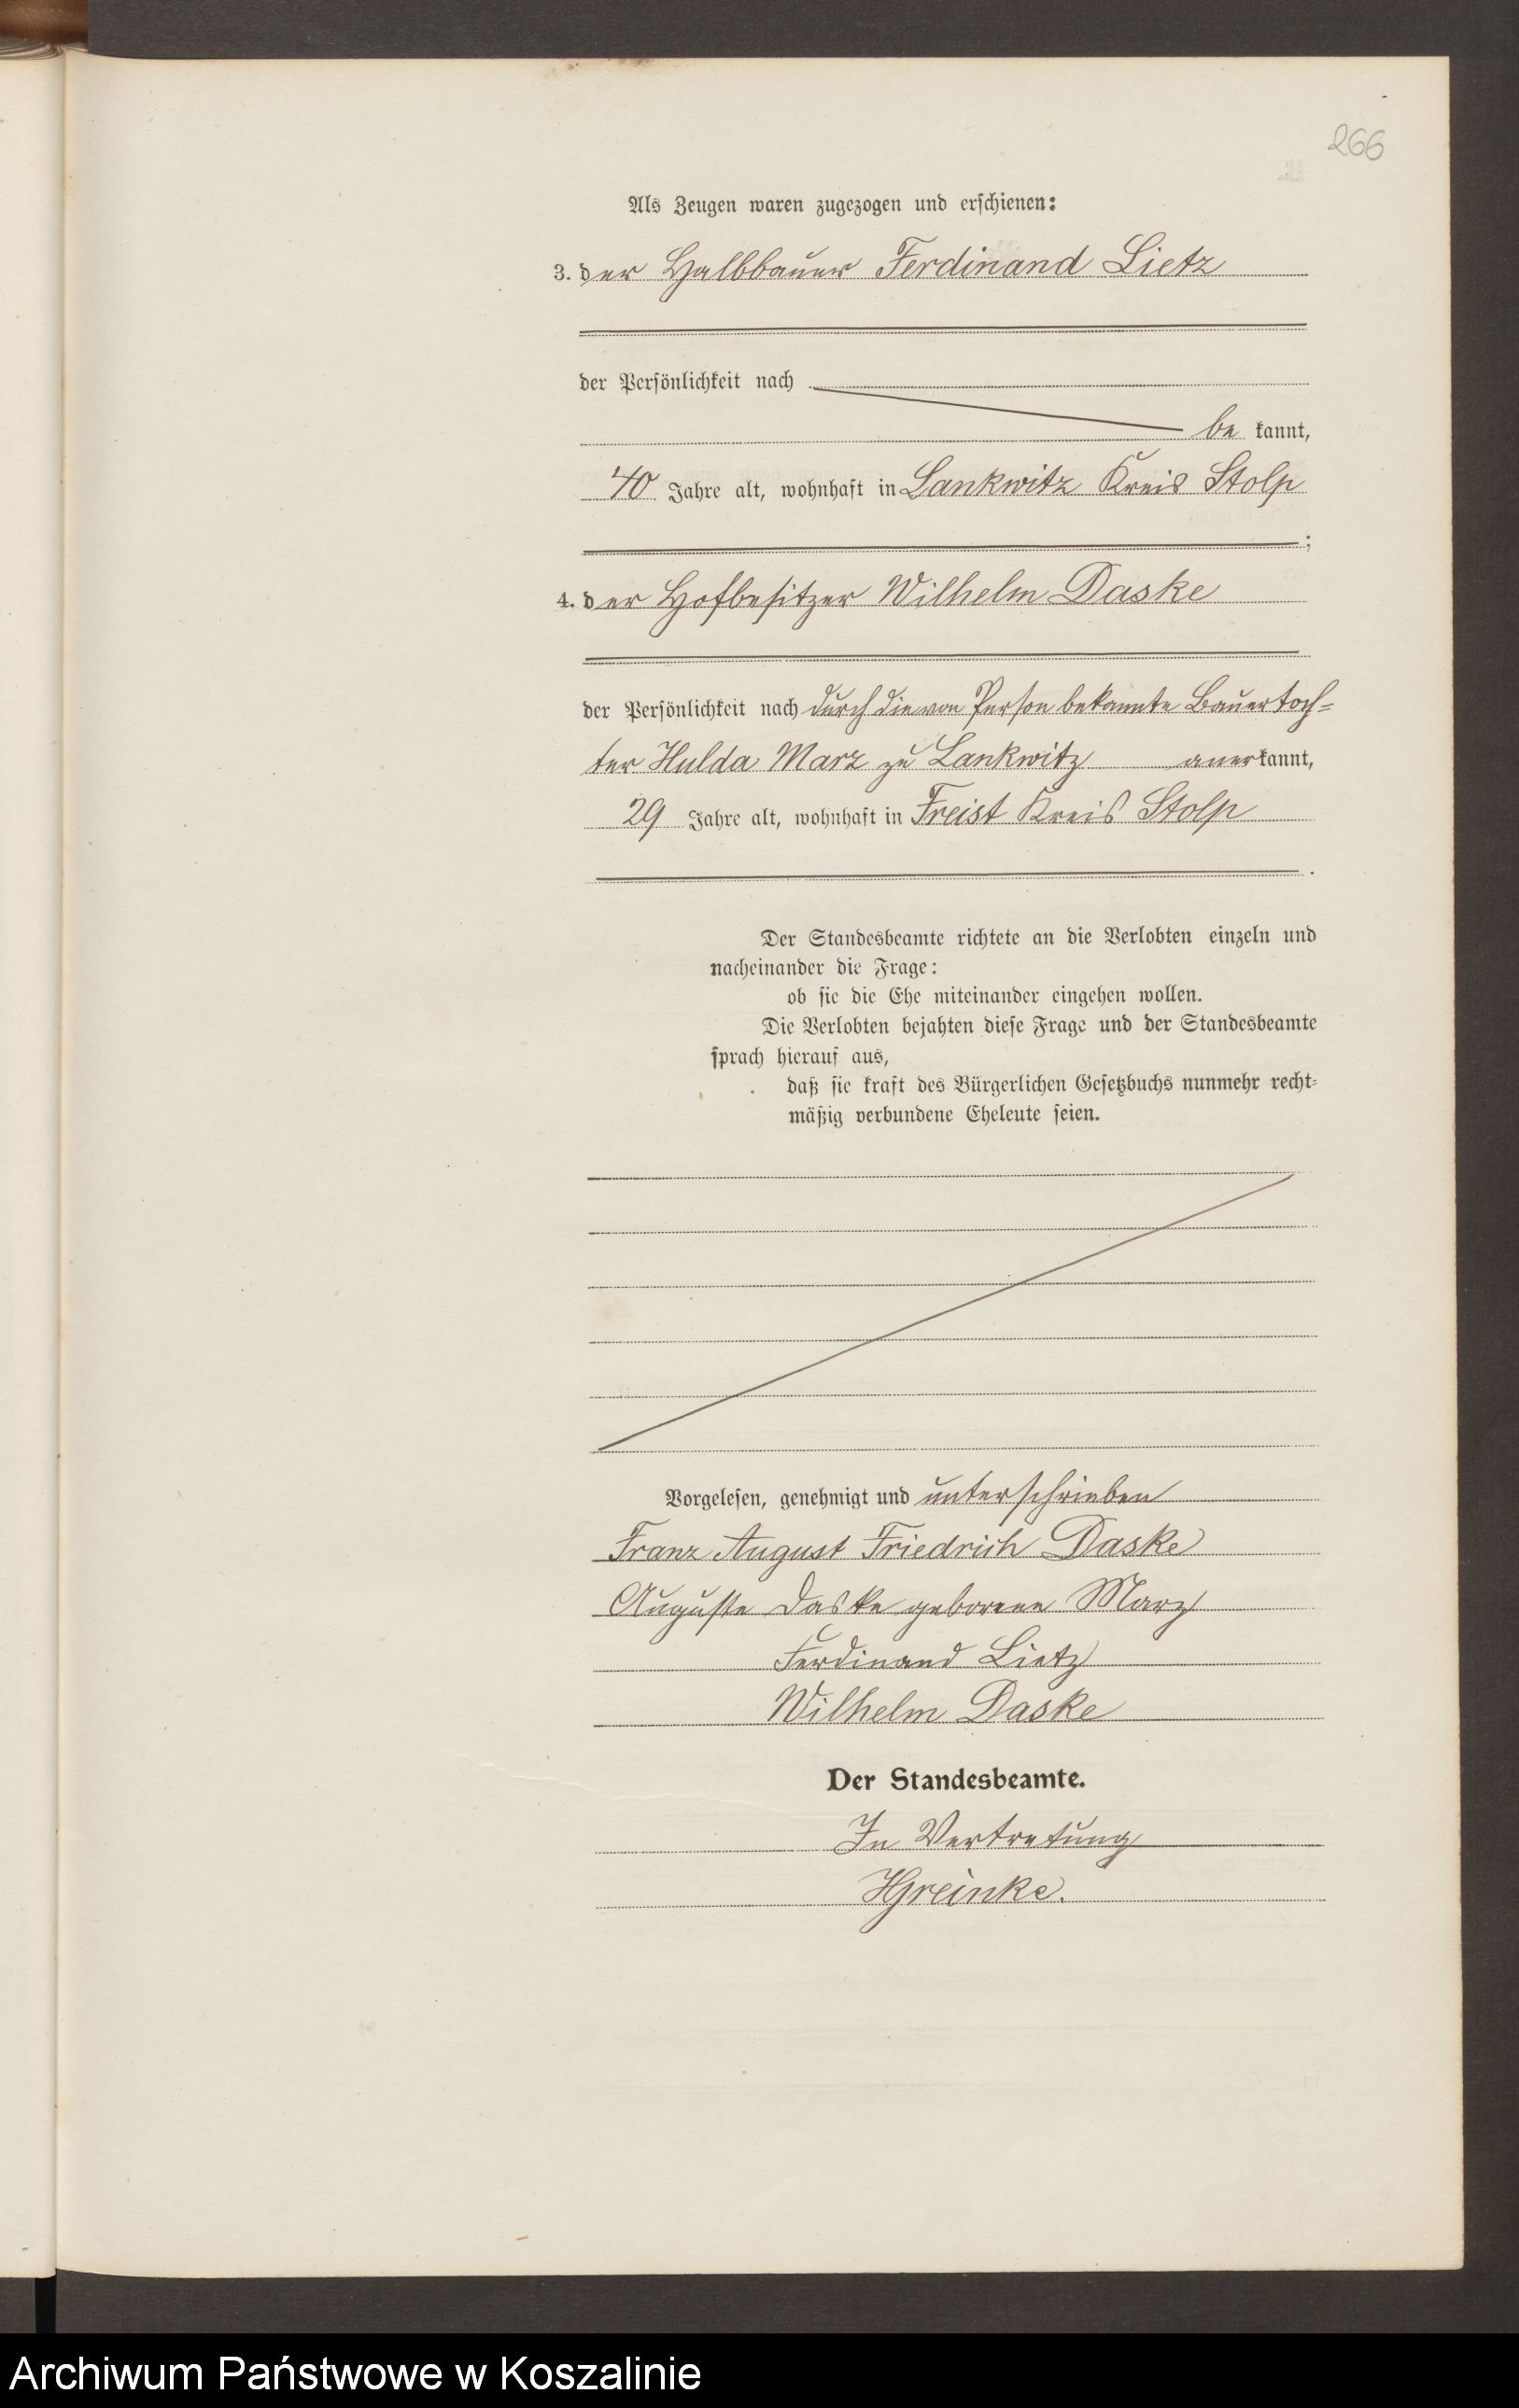 266
Als Zeugen waren zugezogen und erschienen:
3. der Halbbauer Ferdinand Lietz
der Persönlichkeit nach
be kannt,
40 Jahre alt, wohnhaft in Lankwitz Kreis Stolp
;
4. der Hofbesitzer Wilhelm Daske
der Persönlichkeit nach durch die von Person bekannte Bauertoch=
ter Hulda Marz zu Lankwitz anerkannt,
29 Jahre alt, wohnhaft in Freist Kreis Stolp
.
Der Standesbeamte richtete an die Verlobten einzeln und
nacheinander die Frage:
ob sie die Ehe miteinander eingehen wollen.
Die Verlobten bejahten diese Frage und der Standesbeamte
sprach hierauf aus,
daß sie kraft des Bürgerlichen Gesetzbuchs nunmehr recht=
mäßig verbundene Eheleute seien.
Vorgelesen, genehmigt und unterschrieben
Franz August Friedrich Daske
Auguste Daske geborene Marz
Ferdinand Lietz
Wilhelm Daske
Der Standesbeamte.
In Vertretung
HGreinke.
Archiwum Państwowe w Koszalinie